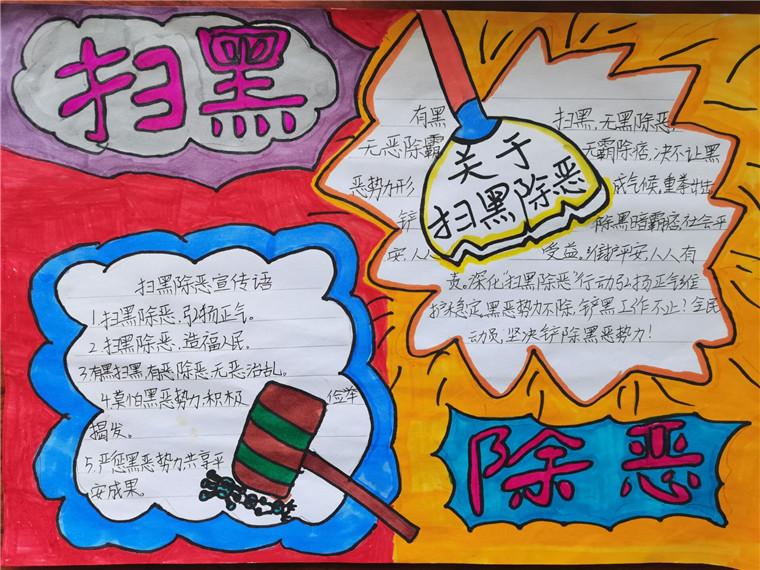 扫黑
扫黑除恶宣传语
1.扫黑除恶,弘扬正气。
2.扫黑除恶,造福人民.
3.有黑扫黑,有恶除恶,无恶治乱。
4.莫怕黑恶势力积极 俭举
揭发。
5.严惩黑恶势力共享平
安成果。
关于
扫黑除恶
有黑 扫黑,无黑除恶,
无恶除霸 无霸除痞,决不让黑
恶势力形 成气候,重拳出击
铲 除黑暗霸痞社会平
安,人人 受益。维护平安,人人有
责。深化“扫黑除恶”行动弘扬正气维
护稳定,黑恶势力不除,铲黑工作不止?全民
动员,坚决铲除黑恶势力!
除恶